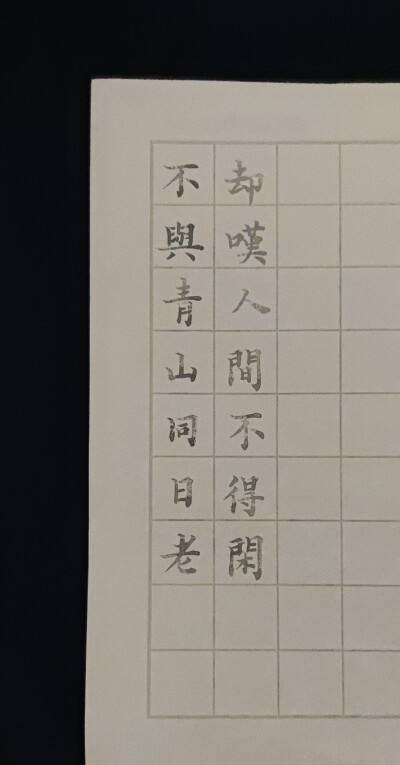 却嘆人間不得閑
不與青山同日老